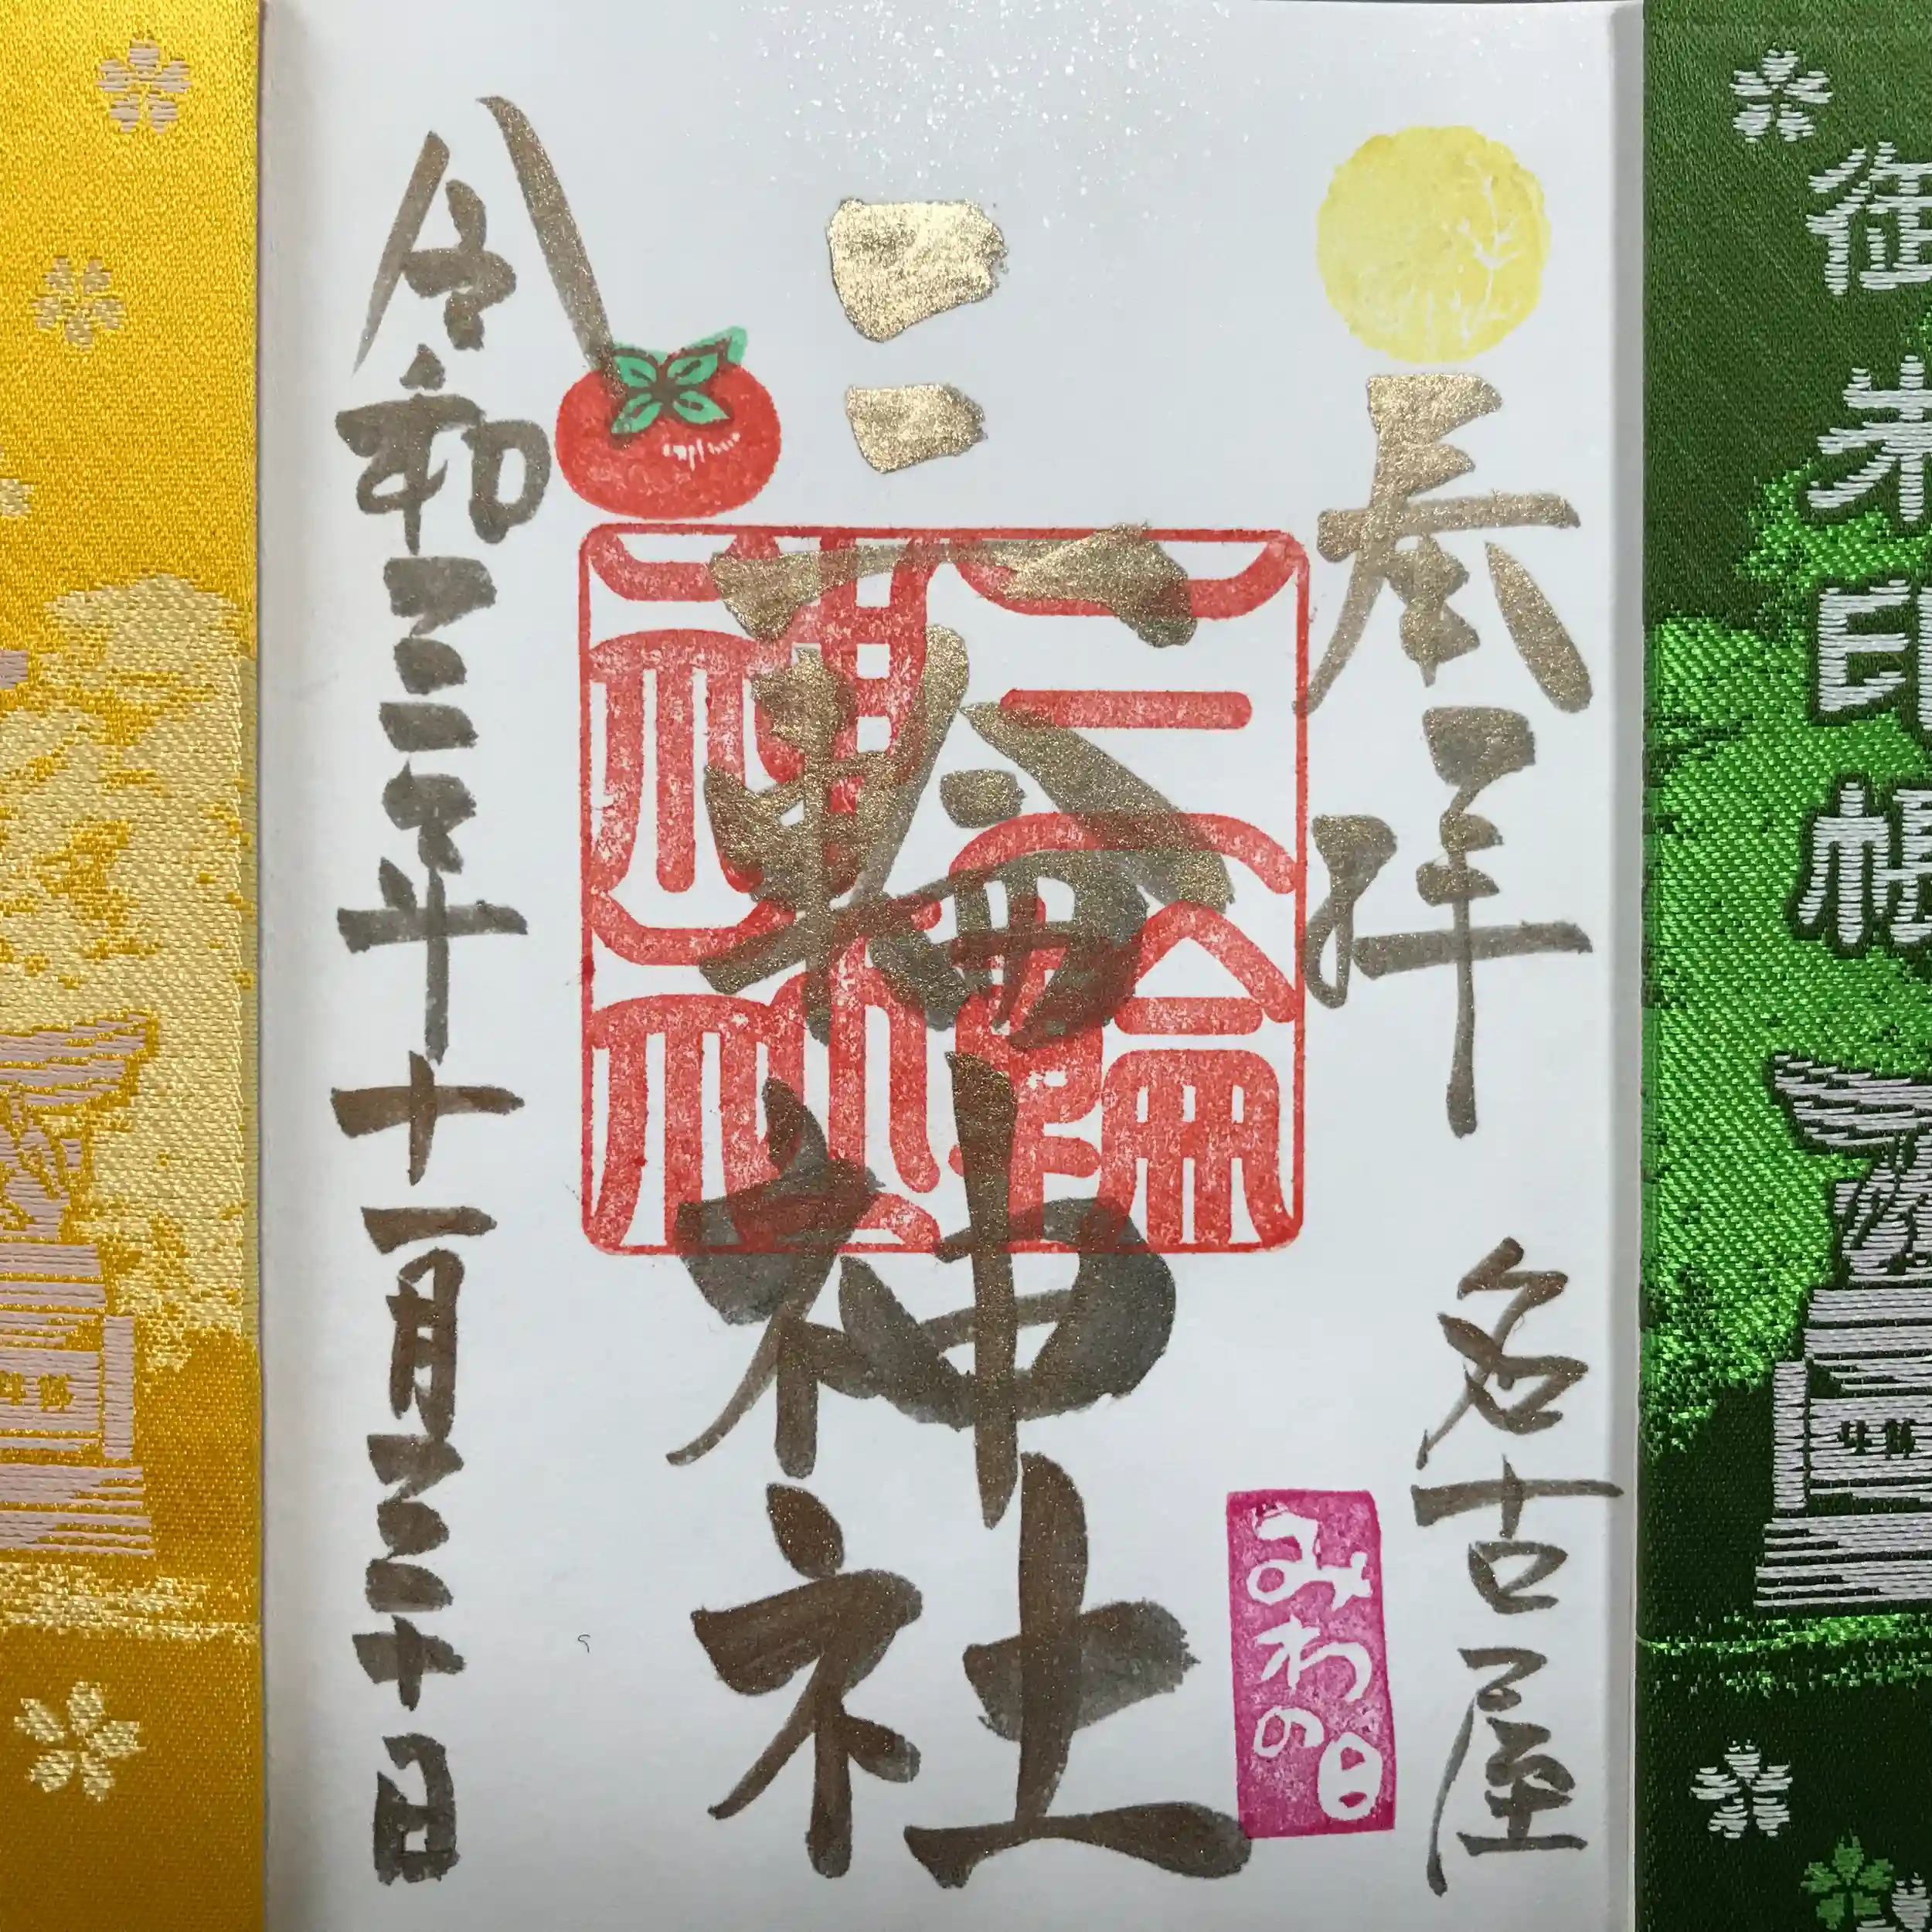 御朱印帳
奉拝
名古屋
みわの日
三輪神社
三輪
神社
令和三年十一月三十日